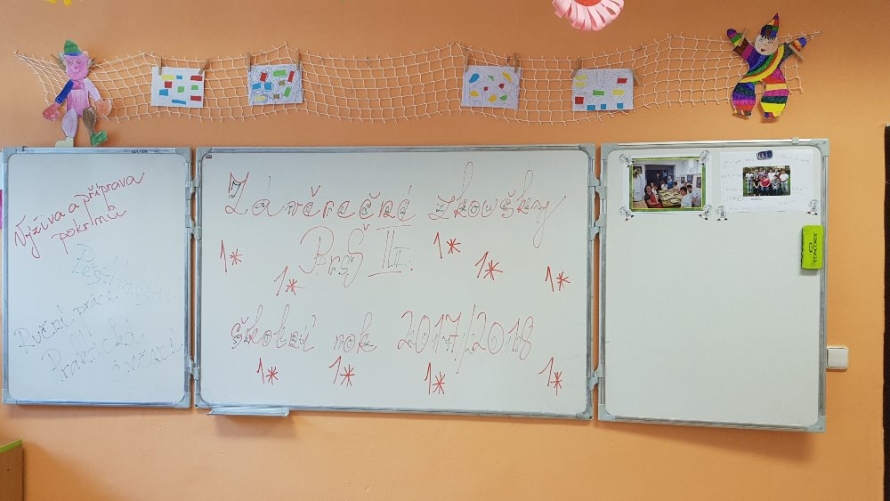 Výživa a příprava
pokrmů
Ruční práce
Praktická
cvičení
Závěrečné zkoušky
PrŠ II.
1* 1* 1* 1* 1*
školní rok 2017/2018
1* 1* 1* 1*